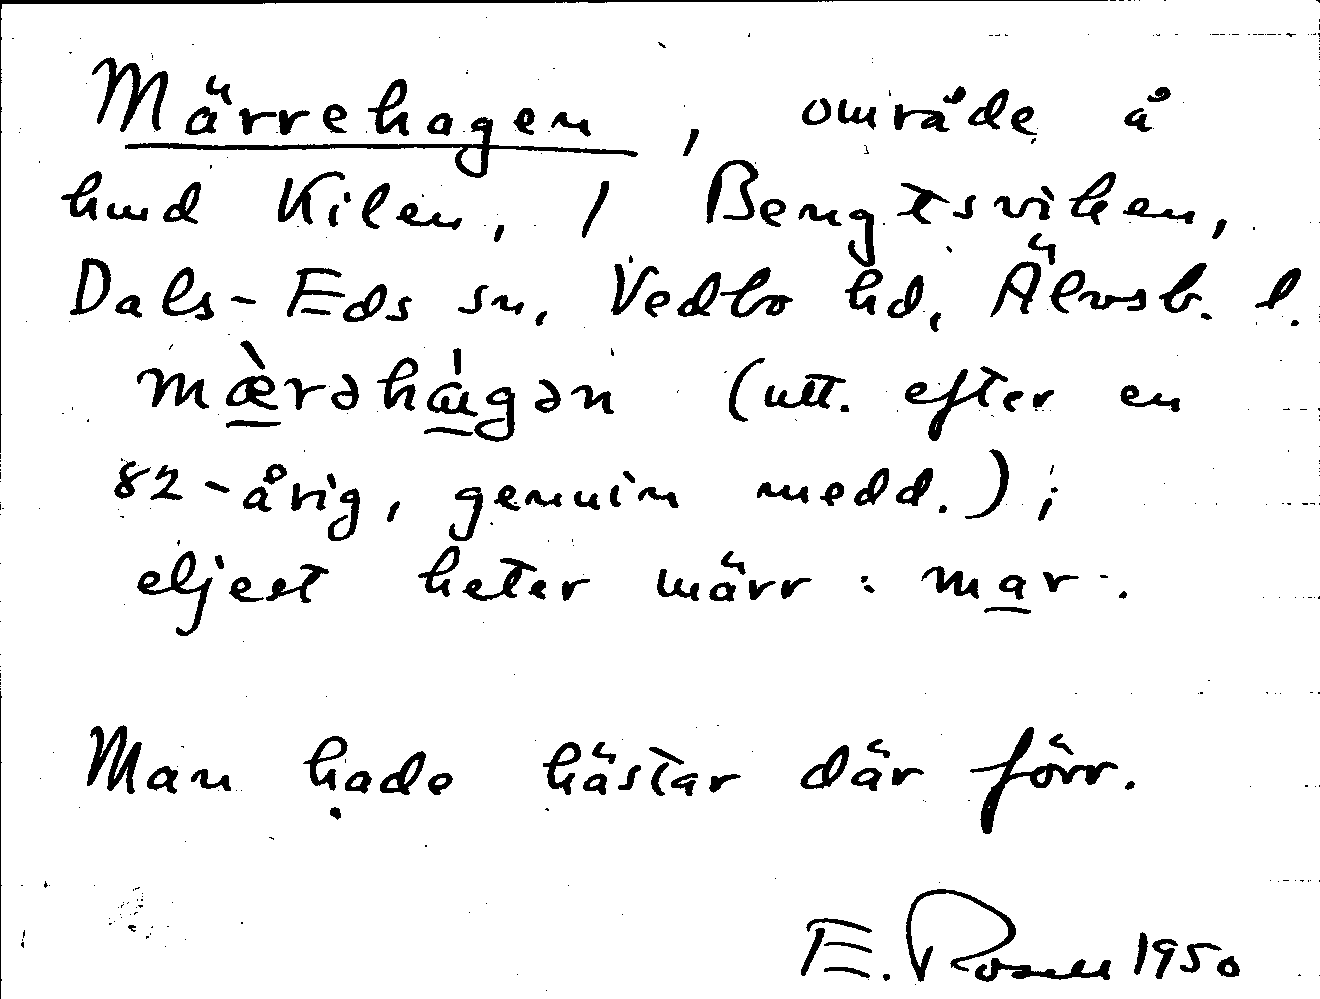 Märrehagen, område å
hmd Kilen, 1 Bengtsviken,
Dals-Eds sn, Vedbo hd, Älvsb. l.
mæ̀rəhágən (utt. efter en
82-årig, genuin medd.);
eljest heter märr: mar.
Man hade hästar där förr.
E. Rosell 1950